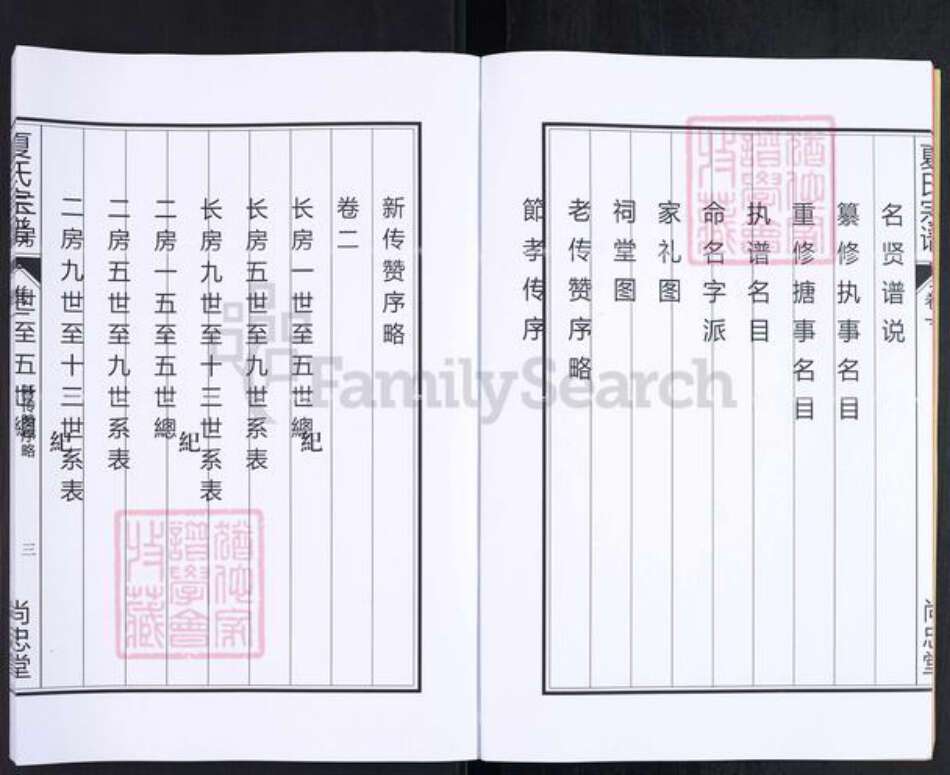 夏氏宗谱
名贤谱说
纂修执事名目
重修搪事名目
执谱名目
命名字派
家礼图
祠堂图
老传赞序略
節孝传序
新传赞序略
卷二
长房一世至五世總紀
长房五世至九世系表
长房九世至十三世系表
二房一五至五世總紀
二房五世至九世系表
二房九世至十三世系表
世至五世總紀
夏氏宗譜
传 序略
三
尚忠堂
尚忠堂
猶他家譜學會收藏
猶他家譜學會收藏
FamilySearch